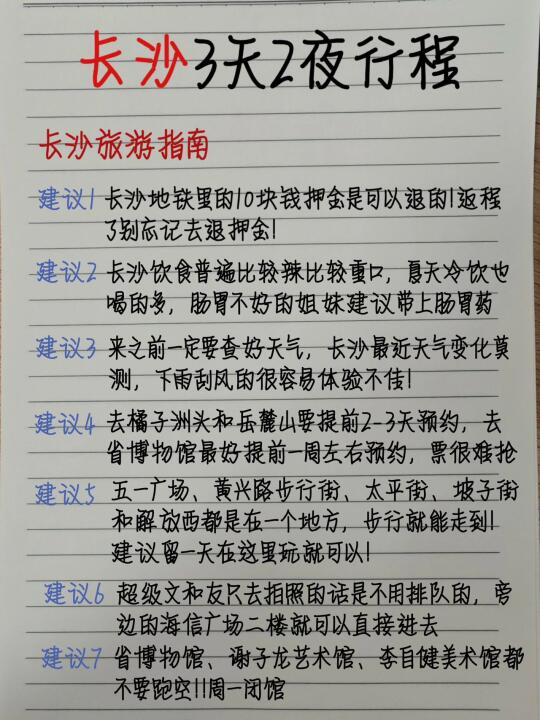 长沙3天2夜行程
长沙旅游指南
建议1 长沙地铁里的10块钱押金是可以退的!返程
了别忘记去退押金!
建议2 长沙饮食普遍比较辣比较重口，夏天冷饮也
喝的多，肠胃不好的姐妹建议带上肠胃药
建议3 来之前一定要查好天气，长沙最近天气变化莫
测，下雨刮风的很容易体验不佳!
建议4 去橘子洲头和岳麓山要提前2-3天预约，去
省博物馆最好提前一周左右预约，票很难抢
建议5 五一广场、黄兴路步行街、太平街、坡子街
和解放西都是在一个地方，步行就能走到!
建议留一天在这里玩就可以!
建议6 超级文和友只去拍照的话是不用排队的，旁
边的海信广场二楼就可以直接进去
建议7 省博物馆、谢子龙艺术馆、李自健美术馆都
不要跑空!!周一闭馆